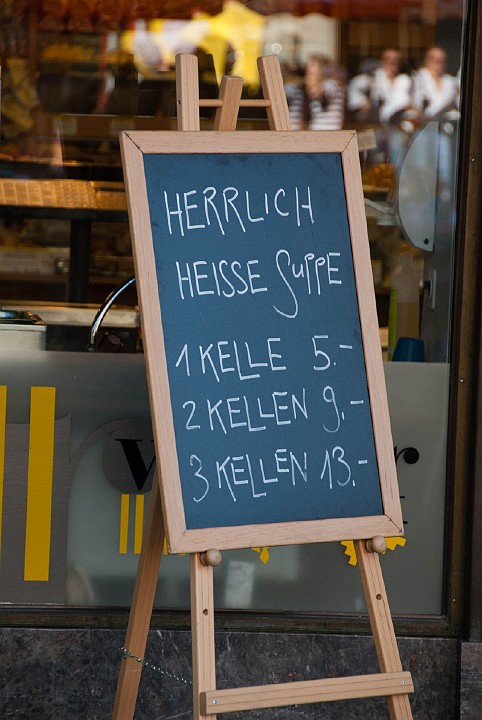 HERRLICH
HEISSE SUPPE
1 KELLE 5.-
2 KELLEN 9.-
3 KELLEN 13.-